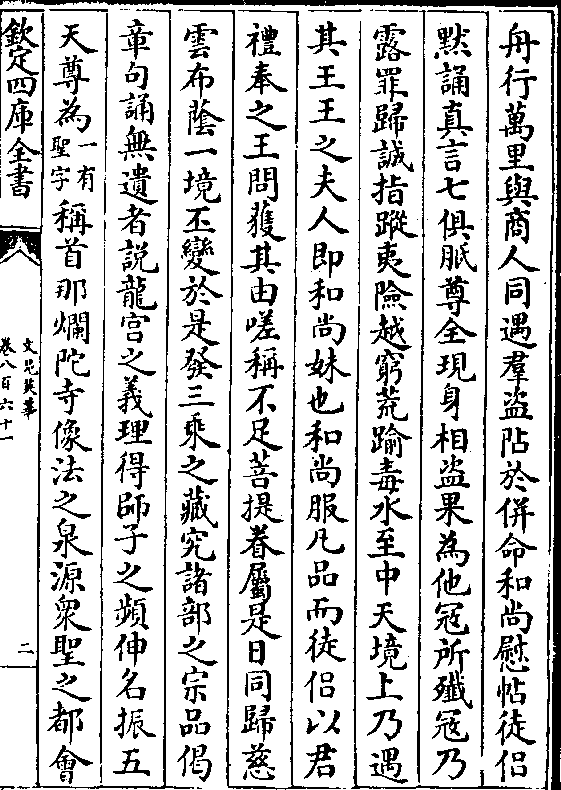 舟行萬里與商人同遇羣盗阽於併命和尚慰帖徒侣
黙誦真言七俱胝尊全現身相盗果為他冦所殱冦乃
露罪歸誠指蹤夷險越窮荒踰毒水至中天境上乃遇
其王王之夫人即和尚妹也和尚服凡品而徒侣以君
禮奉之王問獲其由嗟稱不足菩提眷屬是日同歸慈
雲布蔭一境丕變於是發三乘之藏究諸部之宗品偈
章句誦無遺者說龍宫之義理得師子之頻伸名振五
天尊為一有聖字稱首那爛陀寺像法之泉源衆聖之都會
欽定四庫全書
文苑英華
卷八百六十一
二